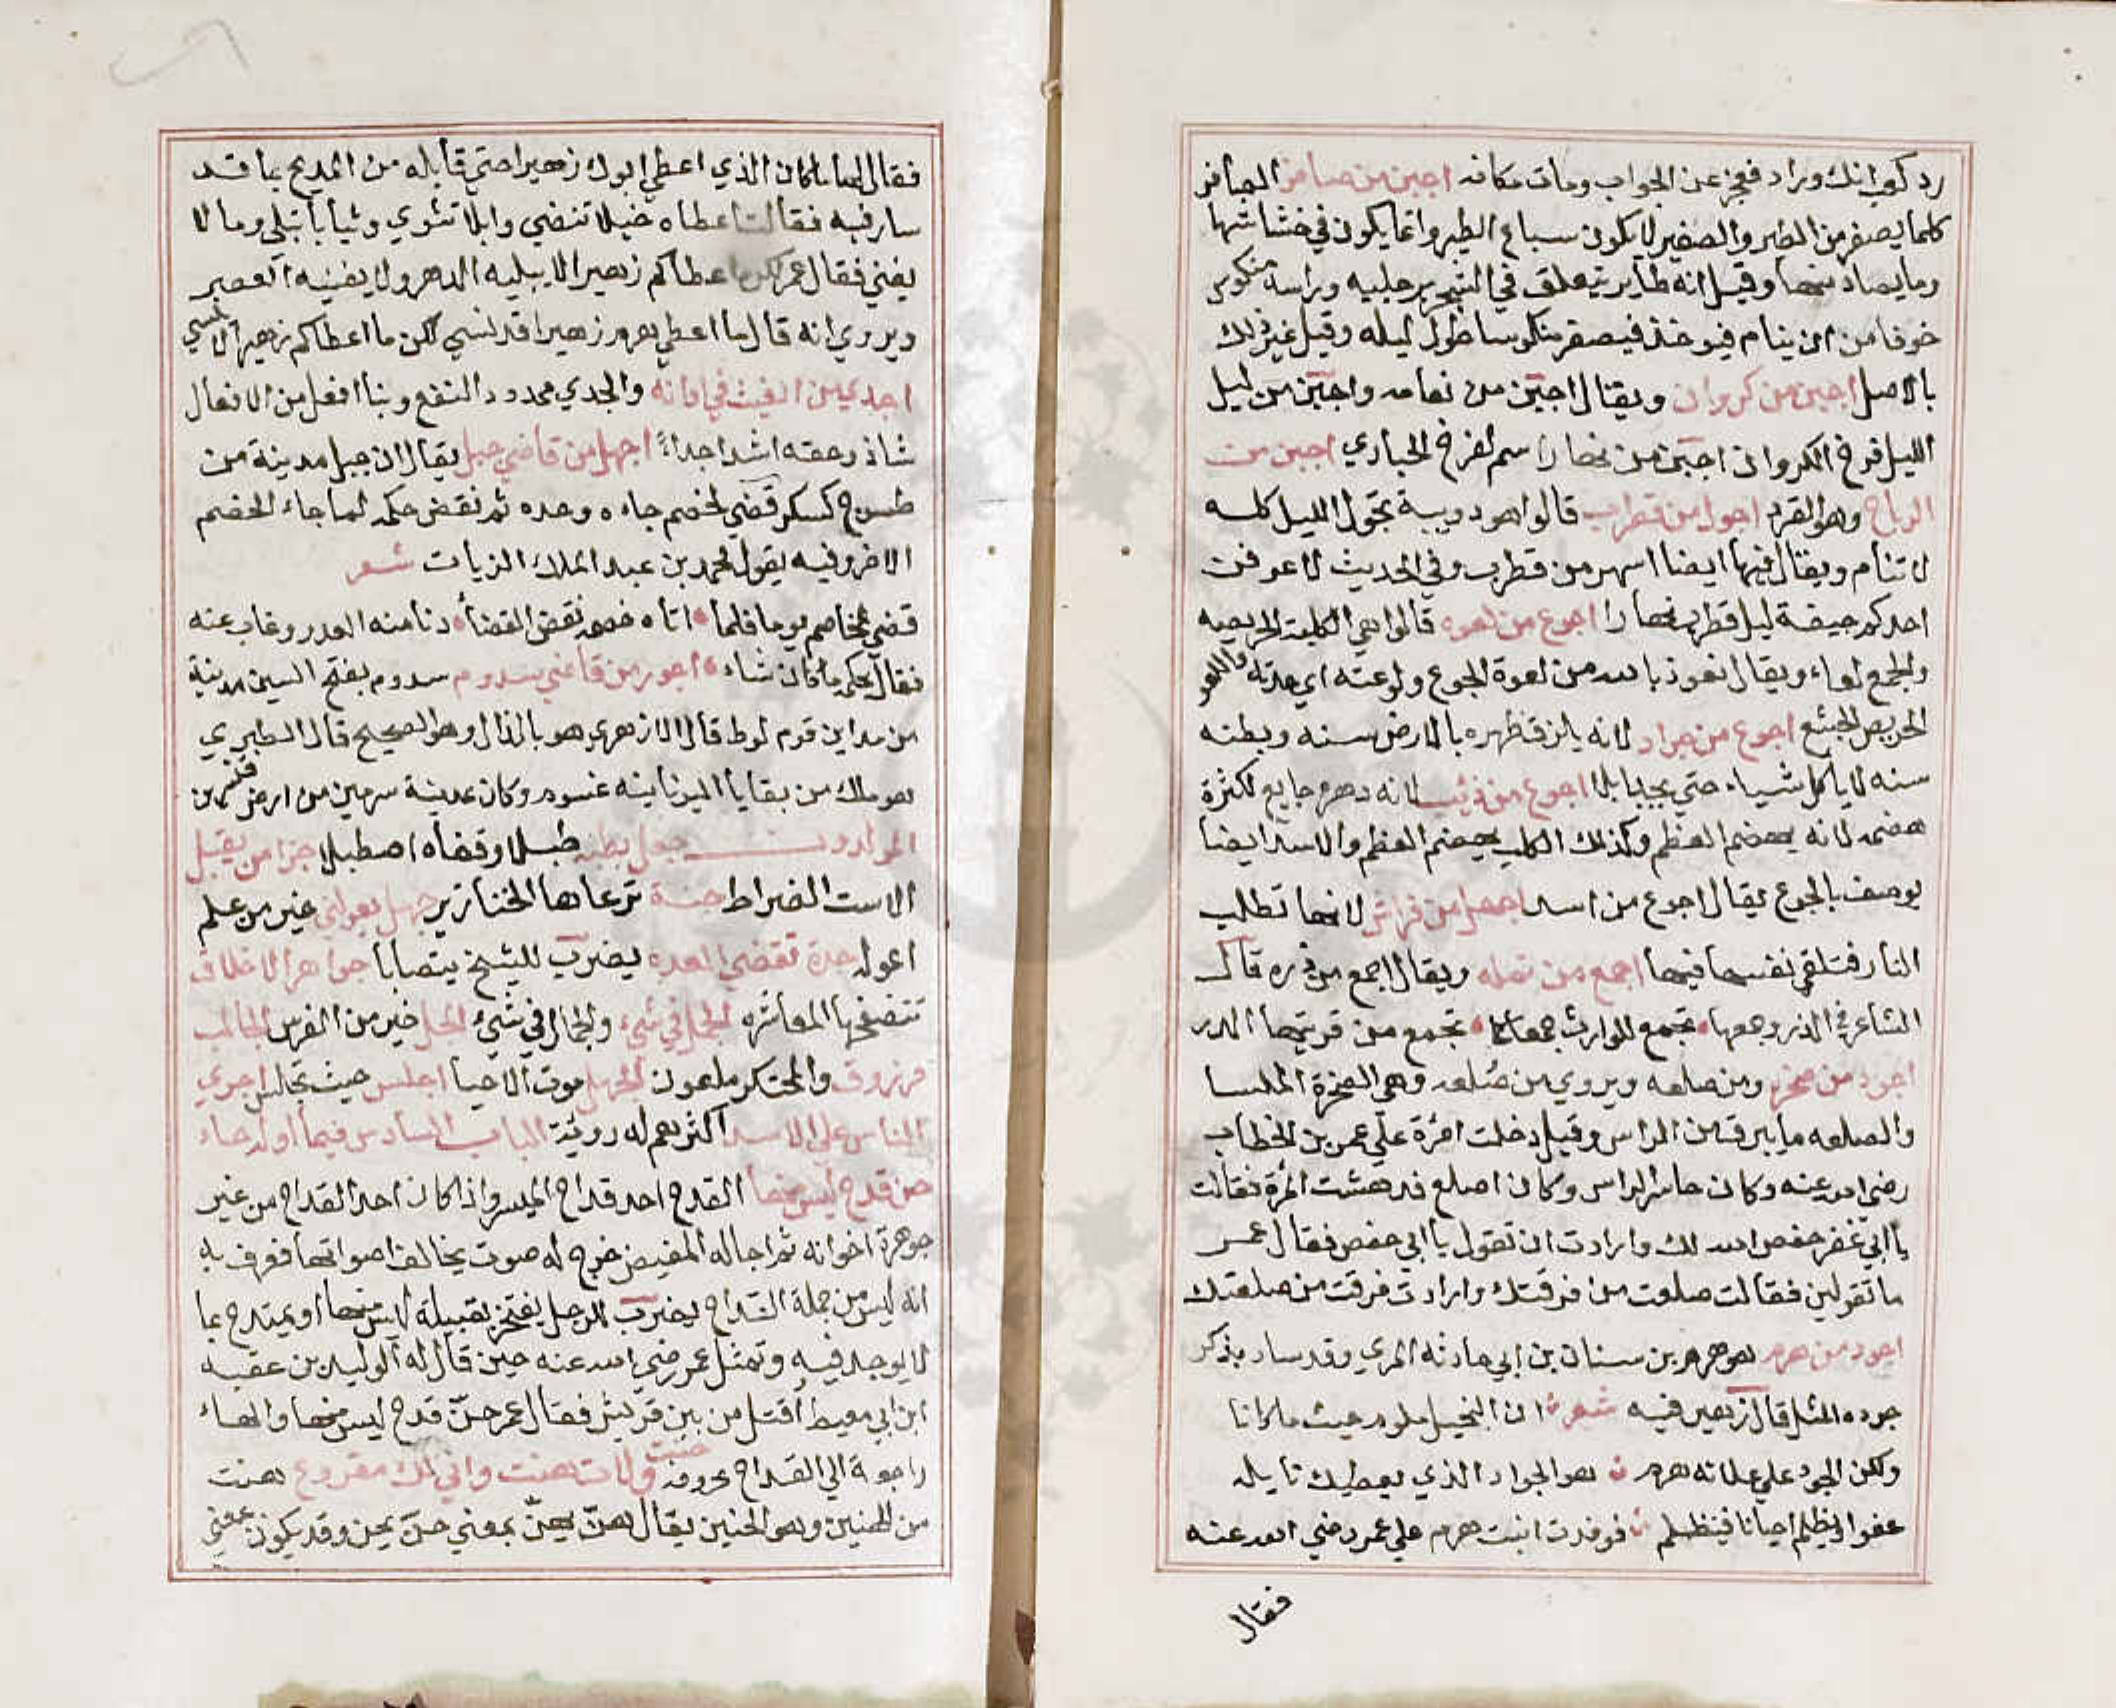 رد كعبا انك وراد فعجز عن الجواب ومات مكانه اجبن من صافر الصافر
كلما يصفر من الطير والصفير لا يكون سباع الطير وانما يكون في خشاشها
وما يصاد منها وقيل انه طاير يتعلق في الشجر برجليه وراسه منكوس
خوفا من ان ينام فيوخذ فيصفر منكوسا طول ليله وقيل غير ذلك
بالاصل اجبن من كروان ويقال اجبن من نعامه واجبن من ليل
الليل فرخ الكروان اجبن من نهار اسم لفرخ الحباري اجبن من
الرباح وهو القرد اجول من قطرب قالوا هو دويبة تجول الليل كله
لا تنام ويقال فيها ايضا اسهر من قطرب وفي الحديث لا عرفن
احدكم جيفة ليل قطرب نهارا اجوع من لعوه قالوا هي الكلبة الحريصه
والجمع لعاء ويقال نعوذ بالله من لعوة الجوع ولوعته اي حدته واللعو
الحريص الجشع اجوع من جراد لانه يلزق ظهره بالارض سنه وبطنه
سنه لا ياكل شياء حتي اجوع من ذئب لانه دهره جايع لكثرة
هضمه لانه يهضم العظم وكذلك الكلب يهضم العظم والاسد ايضا
يوصف بالجوع يقال اجوع من اسد اجهل من فراش لانها تطلب
النار فتلقي نفسها فيها اجمع من نمله ويقال اجمع من ذره قال
الشاعر في الذر وجمعها تجمع للوارث جمعا كما تجمع من قريتها الذر
اجرد من صخره ومن صلعه ويروي من صُلعه وهي الصخرة الملسا
والصلعه ما يبرق من الراس وقيل دخلت امرة علي عمر بن الخطاب
رضي الله عنه وكان حاسر الراس وكان اصلع فدهشت المرة فقالت
يا ابي غفر حفص الله لك وارادت ان تقول يا ابي حفص فقال عمر
ما تقولين فقالت صلعت من فرقتك وارادت فرقت من صلعتك
اجود من هرم هو هرم بن سنان بن ابي حارثه المري وقد سار بذكر
جوده المثل قال زهير فيه شعر ان البخيل ملوم حيث ما كانا
ولكن الجود علي علاته هرم هو الجواد الذي يعطيك نايله
عفوا ويظلم احيانا فينظلم فوفدت ابنت هرم علي عمر رضي الله عنه
فقال
فقال لها ما كان الذي اعطي ابوك زهيرا حتي قابله من المديح بما قد
سار فيه فقالت اعطاه خيلا تنضي وابلا تتوي وثيابا تبلي ومالا
يفني فقال عمر لكن ما اعطاكم زهير لا يبليه الدهر ولا يفنيه العصر
ويروي انه قال ما اعطي هرم زهيرا قد نسي لكن ما اعطاكم زهير لا ينسي
اجدي من الغيث في اوانه والجدي ممدود النفع وبنا افعل من الافعال
شاذ وحقه اشد اجداءً اجهل من قاضي جبل يقال ان جبل مدينة من
طسوج كسكر قضي لخصم جاءه وحده ثم نقض حكمه لما جاء الخصم
الاخر وفيه يقول محمد بن عبد الملك الزيات شعر
قضي لمخاصم يوما فلما اتاه خصمه نقض القضا دنا منه العدو وغاب عنه
فقال بحكمه ما كان شاء اجور من قاضي سدوم سدوم بفتح السين مدينة
من مداين قوم لوط قال الازهري هو بالذال وهو الصحيح قال الطبري
هو ملك من بقايا اليونانيه غشوم وكان بمدينة سرمين من ارض قنسرين
المولدون جعل بطنه طبلا وقفاه اصطبلا جزا من يقبل
الاست الضراط جنة ترعاها الخنازير جهل يعولني خير من علم
اعوله جدة تقضي العده يضرب للشيخ يتصابا جواهر الاخلاق
تتصفحها المعاشره الجمل في شيء والجمال في شيء الجل خير من الفرس الجالب
مرزوق والمحتكر ملعون الجهل موت الاحيا اجلس حيث تجلس اجري
الناس علي الاسد اكثرهم له روئية الباب السادس فيما اوله حاء
حن قدح ليس منها القدح احد قداح الميسر واذا كان احد القداح من غير
جوهرة اخوانه ثم اجاله المفيض خرج له صوت يخالف اصواتها فعرف به
انه ليس من جملة القداح يضرب للرجل يفتخر بقبيلة ليس منها او يمتدح بما
لا يوجد فيه وتمثل عمر رضي الله عنه حين قال له الوليد بن عقبه
ابن ابي معيط اقتل من بين قريش فقال عمر حنّ قدح ليس منها والهاء
راجعة الي القداح حنت ولات هنت واني لك مقروع هنت
من الهنين وهو الحنين يقال هنّ يهنّ بمعني حنّ يحن وقد يكون بمعني